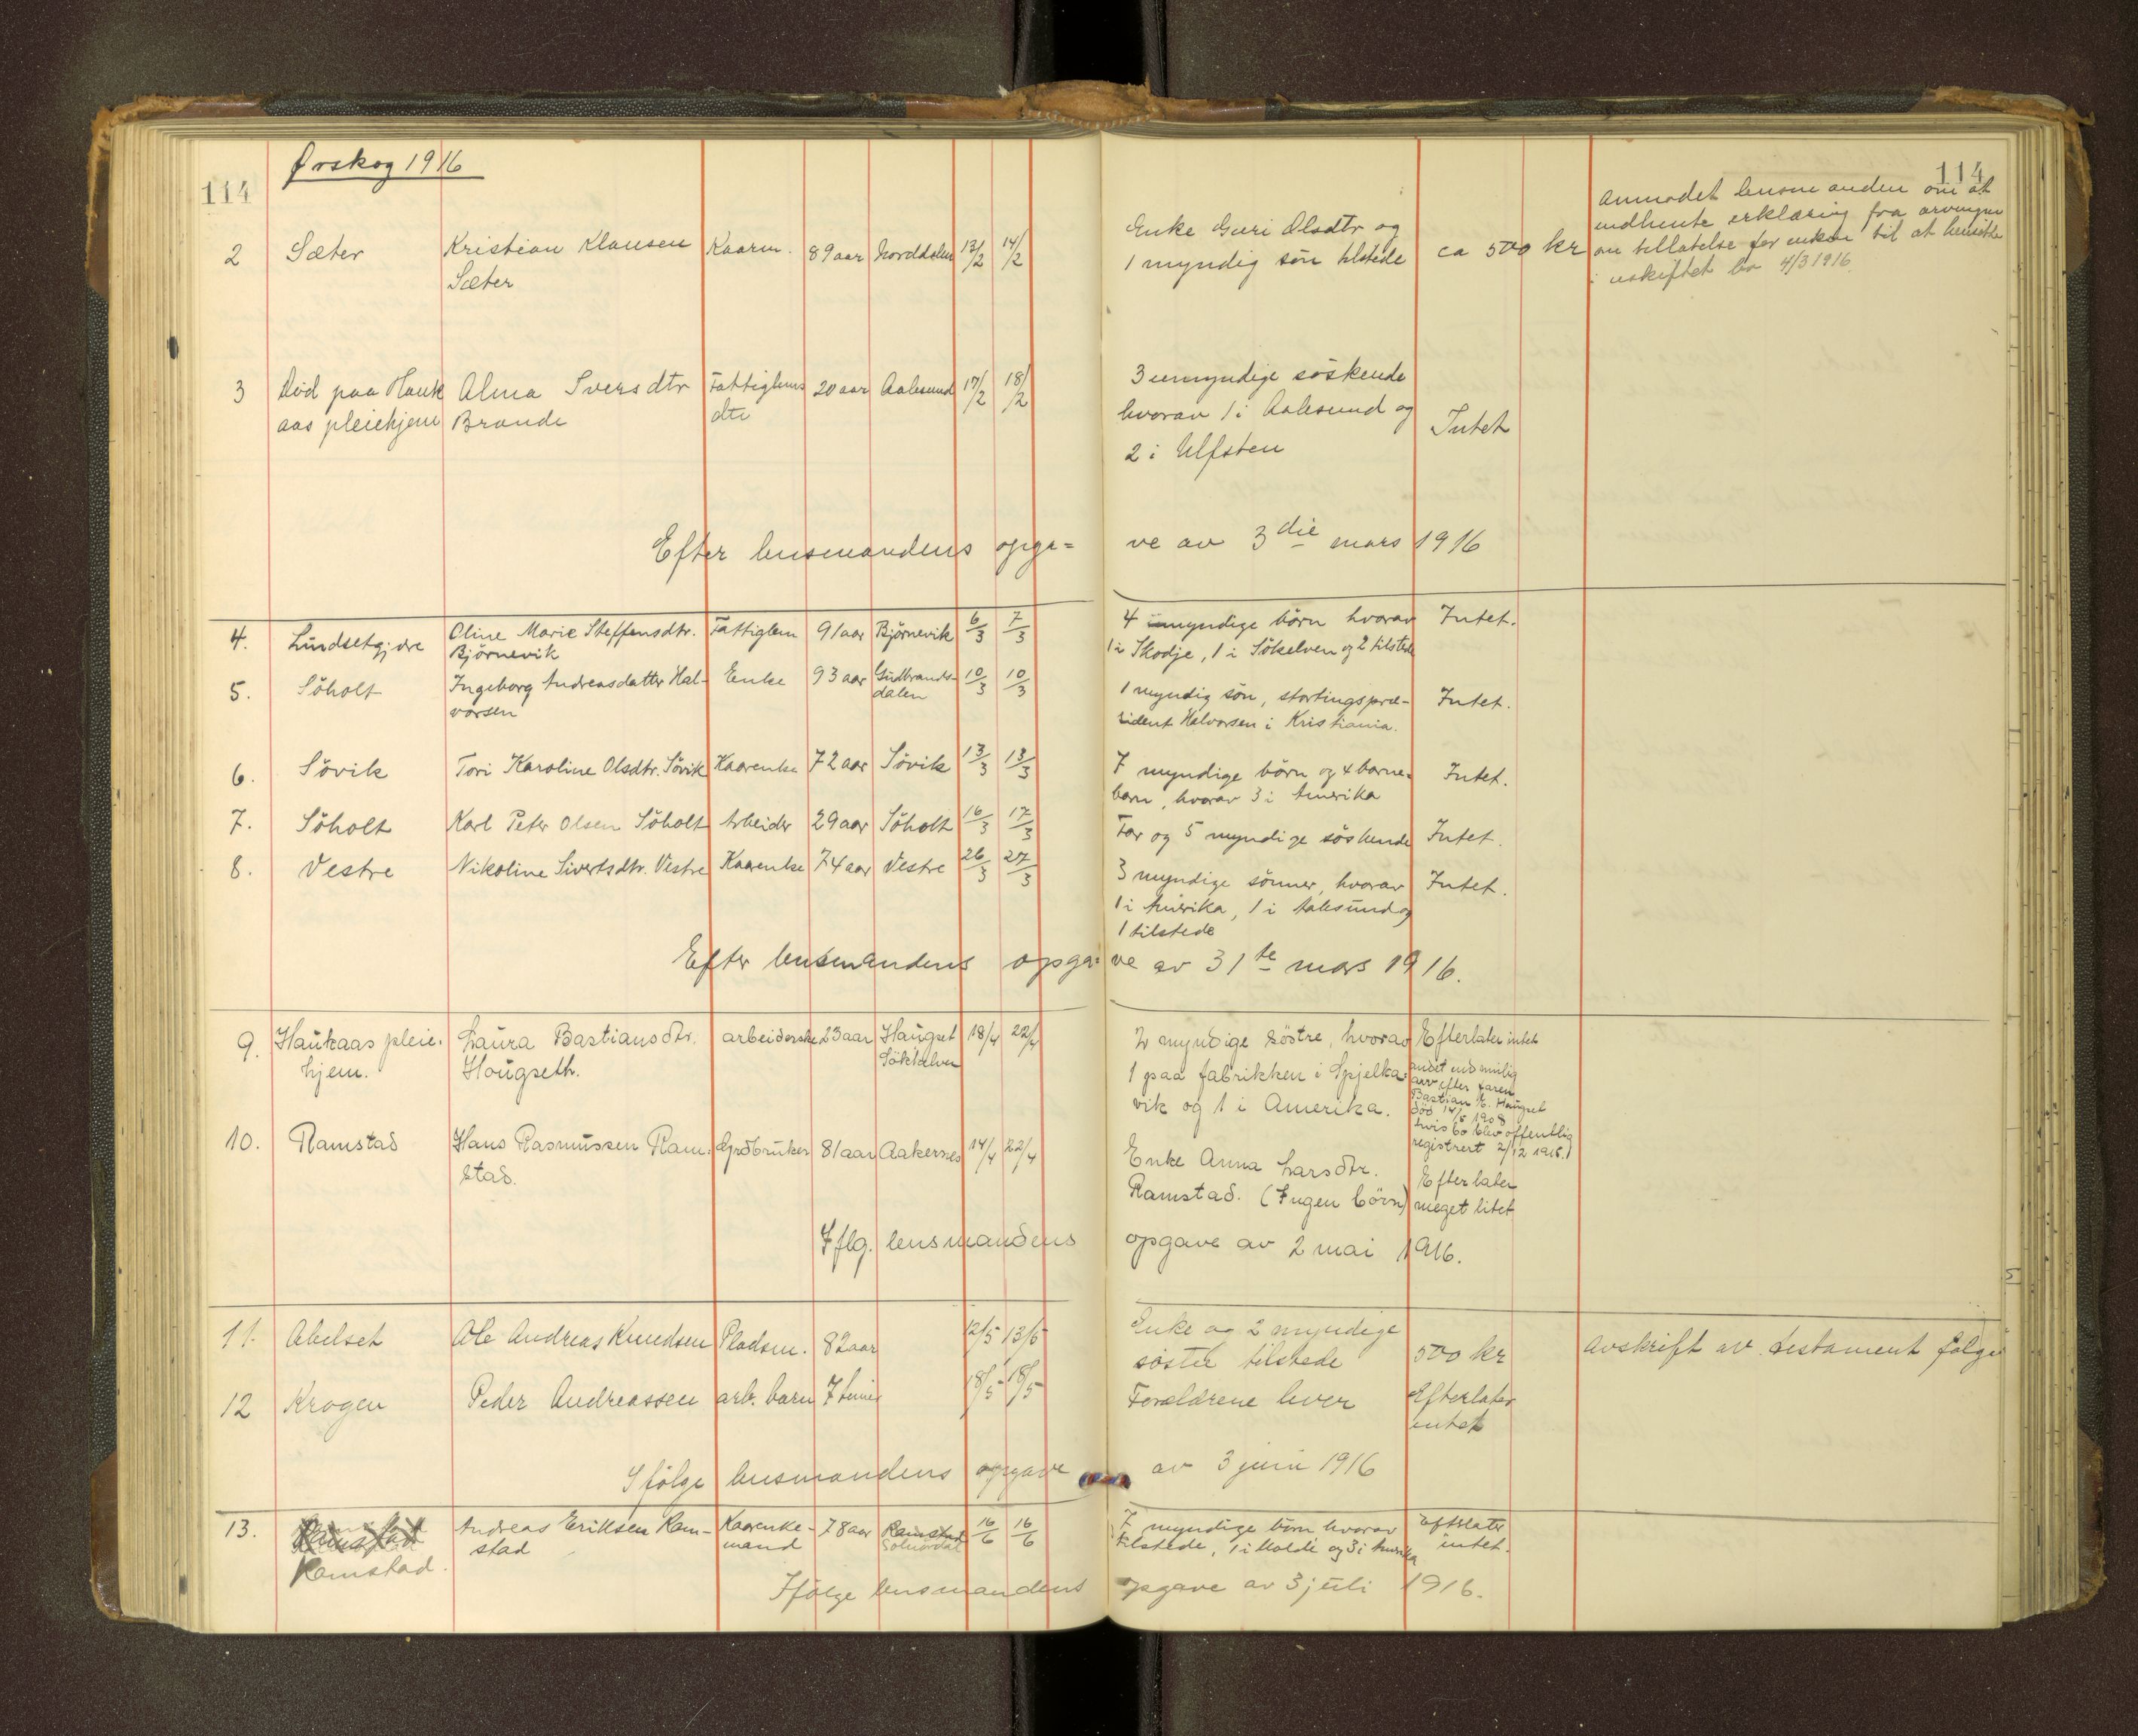 Ørskog 1916
114
114
2 Sæter Kristian Klausen Kaarm. 89 aar Norddalen 13/2 14/2 Enke Guri Olsdtr og ca 500 kr Anmodet lensmanden om at
Sæter 1 myndig søn tilstede indhente erklæring fra arvingene
om tillatelse for enken til at hensitte
i uskiftet bo 4/3 1916.
3 Død paa Hauk Alma Iversdtr Fattiglems 20 aar Aalesund 17/2 18/2 3 umyndige søskende
aas pleiehjem Brande dtr hvorav 1 i Aalesund og Intet
2 i Ulfsten
Efter lensmandens opga= ve av 3die mars 1916
4. Lindsetgjdre Oline Marie Steffensdtr. Fattiglem 91 aar Bjørnevik 6/3 7/3 4 myndige børn hvorav Intet.
Bjørnevik 1 i Skodje, 1 i Søkelven og 2 tilstede
5. Søholt Ingeborg Andreasdatter Hal- Enke 93 aar Gudbrands- 10/3 10/3 1 myndig søn, stortingspræ- Intet.
vorsen dalen sident Halvorsen i Kristiania.
6. Søvik Tori Karoline Olsdtr. Søvik Kaarenke 72 aar Søvik 13/3 13/3 7 myndige børn og 4 barne= Intet.
barn, hvorav 3 i Amerika
7. Søholt Karl Peter Olsen Søholt Arbeider 29 aar Søholt 16/3 17/3 Far og 5 myndige søskende Intet.
8. Vestre Nikoline Sivertsdtr. Vestre Kaarenke 74 aar Vestre 26/3 27/3 3 myndige sønner, hvorav Intet.
1 i Amerika, 1 i Aalesund og
1 tilstede
Efter lensmandens opga= ve av 31te mars 1916.
9. Haukaas pleie- Laura Bastiansdtr. arbeiderske 23 aar Haugset 18/4 22/4 2 myndige søstre, hvorav Efterlater intet
hjem. Hougseth. Søkkelven 1 paa fabrikken i Spjelka= andet end mulig
arv efter faren
vik og 1 i Amerika. Bastian K. Haugset
død 14/5 1908
hvis bo blev offentlig
registrert 2/12 1915.)
10. Ramstad Hans Rasmussen Ram- Gardbruker 81 aar Aakernes 14/4 22/4 Enke Anna Larsdtr. Efterlater
stad. Ramstad. (Ingen børn) meget litet
Iflg. lensmandens opgave av 2 mai 1916.
11. Abelset Ole Andreas Knudsen Pladsm. 82 aar 12/5 13/5 Enke og 2 myndige
søster tilstede 500 kr Avskrift av testament følger
12 Krogen Peder Andreassen arb. barn 7 timer 18/5 18/5 Forældrene lever Efterlater
intet
Ifølge lensmandens opgave av 3 juni 1916
13. Ramstad Andreas Eriksen Ram- Kaarenke- 78 aar Ramstad 16/6 16/6 7 myndige børn hvorav Efterlater
stad mand Solnørdal tilstede, 1 i Molde og 3 i Amerika intet.
Ramstad.
Ifølge lensmandens opgave av 3 juli 1916.